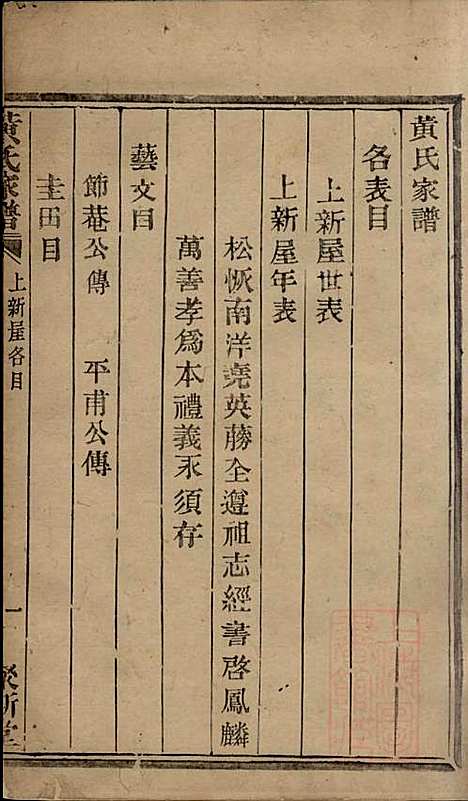 黃氏家譜
各表目
上新屋世表
上新屋年表
松恢南洋堯英勝全遵祖志經書啓鳳麟
萬善孝爲本禮義永須存
藝文目
節菴公傳 平甫公傳
圭田目
黃氏家譜 上新屋各目 一